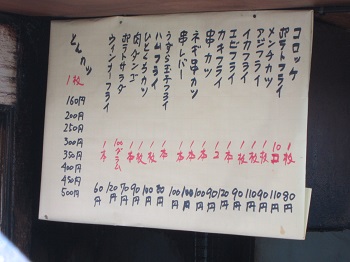 コロッケ 1枚 80円
ポテトフライ 10コ 110円
メンチカツ 1枚 90円
アジフライ 1枚 110円
イカフライ 1枚 90円
エビフライ 1本 120円
カキフライ 1コ 90円
串カツ 1本 100円
ネギ串カツ 1本 100円
串レバー 1本 100円
うずら玉子フライ 1本 80円
ハムフライ 1枚 100円
ひとくちカツ 1枚 90円
肉ダンゴ 1本 70円
ポテトサラダ 100グラム 120円
ウィンナーフライ 1本 60円
とんカツ
1枚
160円
200円
250円
300円
350円
400円
450円
500円